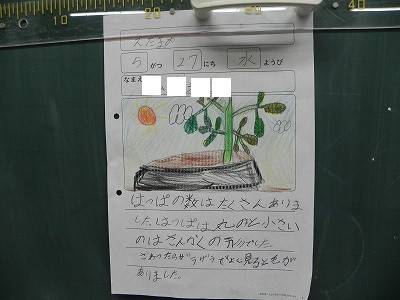 10 20 30 40
えだまめ
5 がつ 27 にち 水 ようび
なまえ
はっぱの数はたくさんありま
した。はっぱは丸のと小さい
のはさんかくの形でした。
さわったらザラザラでよく見ると毛が
ありました。